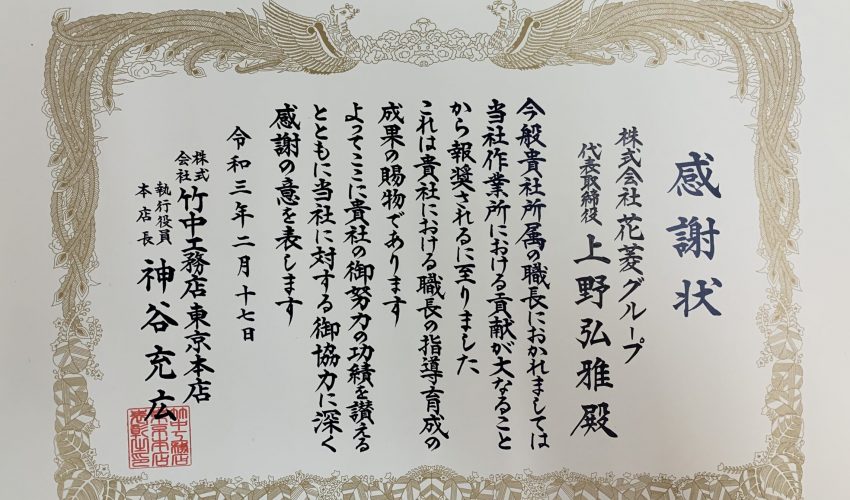 感謝状
株式会社花菱グループ
代表取締役 上野弘雅殿
今般貴社所属の職長におかれましては
当社作業所における貢献が大なること
から報奨されるに至りました
これは貴社における職長の指導育成の
成果の賜物であります
よってここに貴社の御努力の功績を讃える
とともに当社に対する御協力に深く
感謝の意を表します
令和三年二月十七日
株式会社竹中工務店東京本店
執行役員
本店長 神谷充広